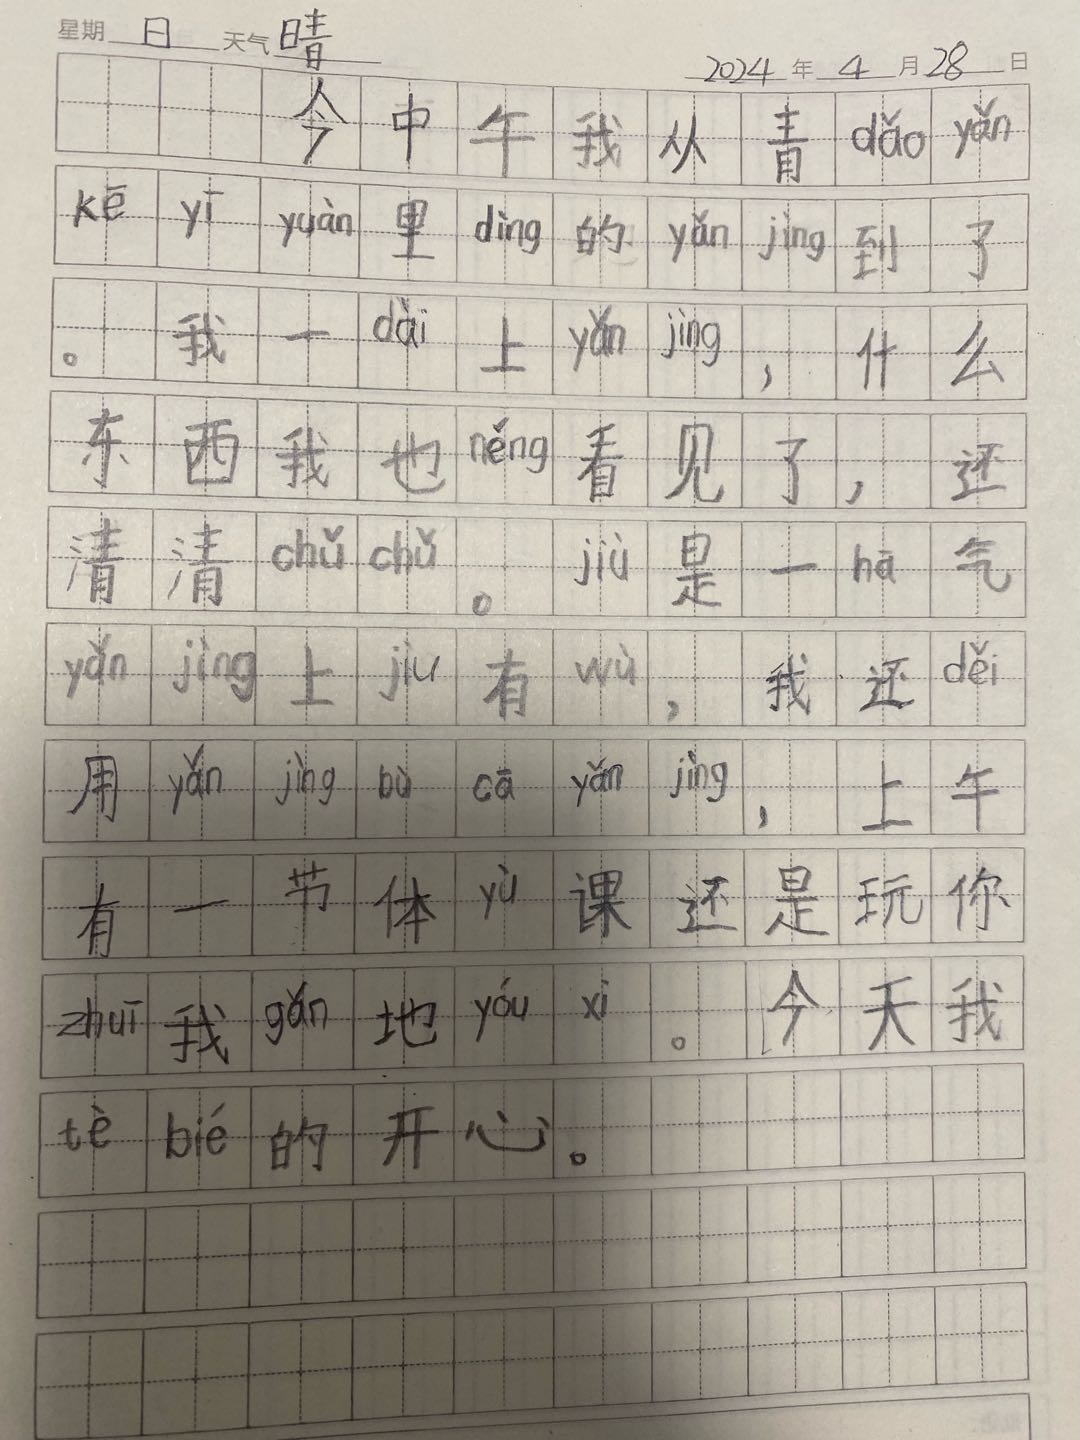 星期 日 天气 晴
2024 年 4 月 28 日
今中午我从青 dǎo yǎn
kē yī yuàn 里 dìng 的 yǎn jìng 到了
。我一 dài 上 yǎn jìng ，什么
东西我也 néng 看见了，还
清清 chǔ chǔ 。 jiù 是一 hā 气
yǎn jìng 上 jiù 有 wù ，我还 děi
用 yǎn jìng bù cā yǎn jìng ，上午
有一节体 yù 课还是玩你
zhuī 我 gǎn 地 yóu xì 。今天我
tè bié 的开心。